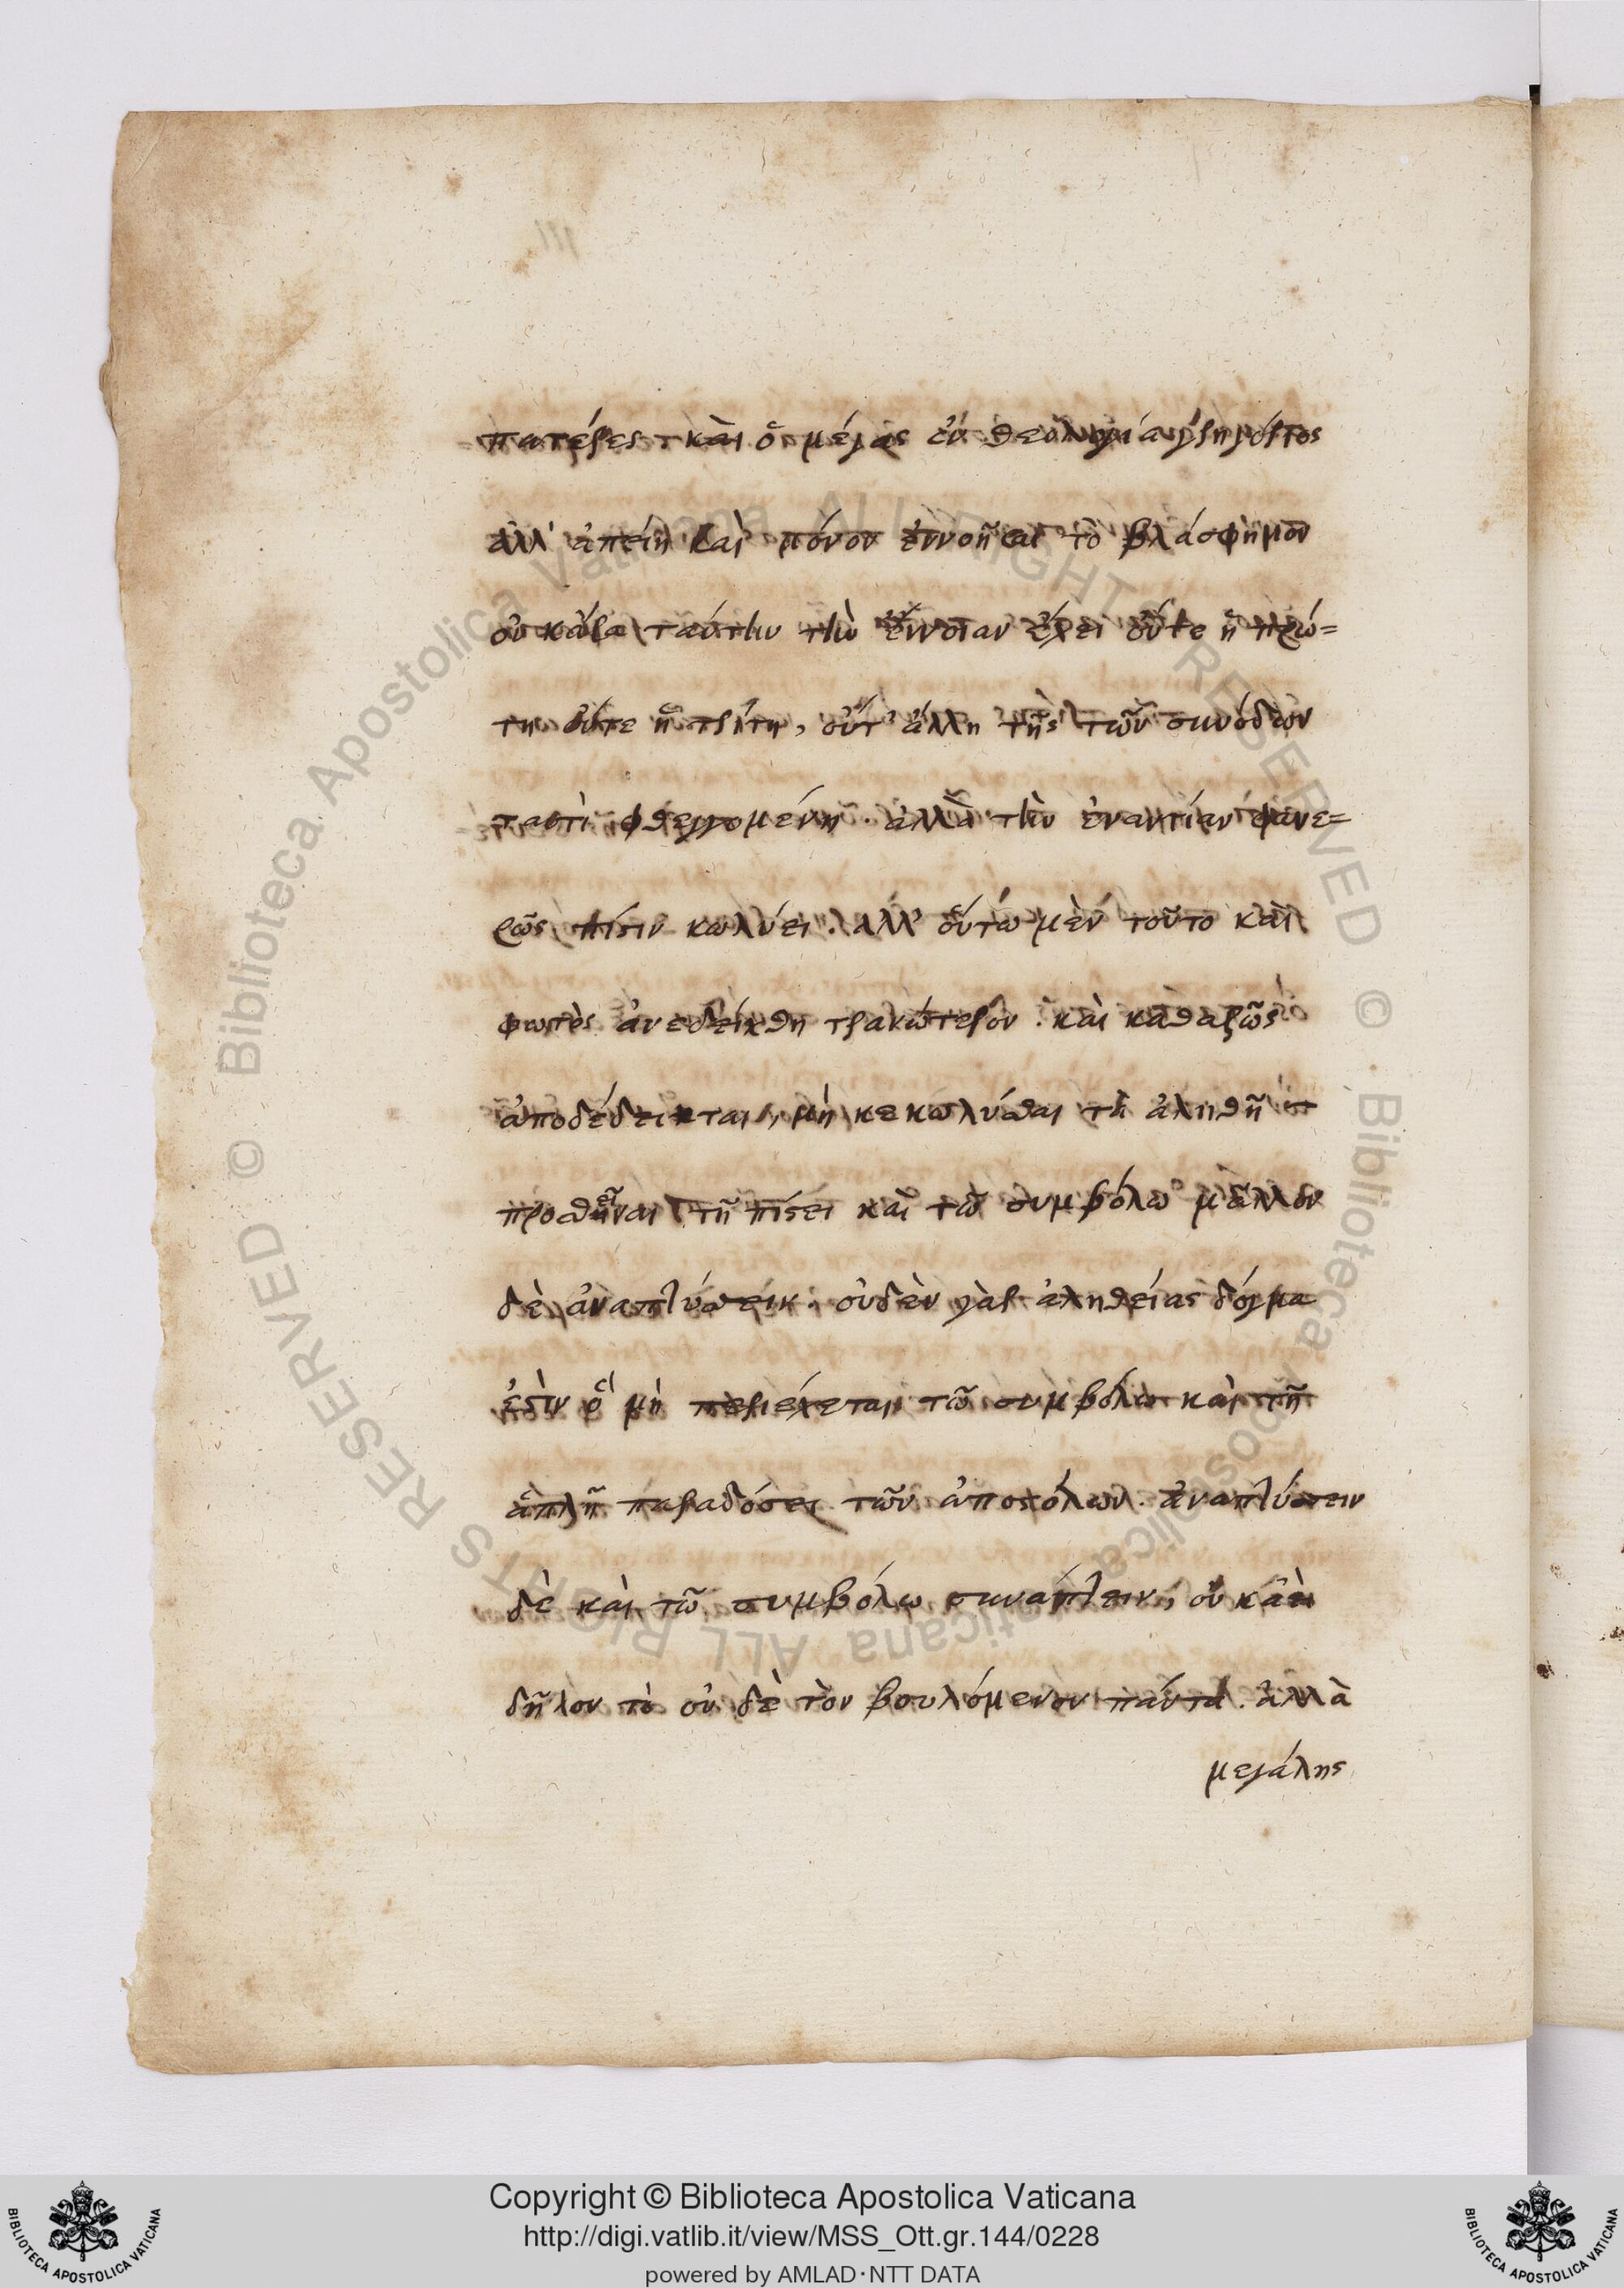 πατέρες καὶ ὁ μέγας ἐν θεολογία γρηγόριος
ἀλλ' ἀπείη καὶ μόνον ἐννοῆσαι τὸ βλάσφημον
οὐκ ἄρα ταύτην τὴν ἔννοιαν ἔχει οὔτε ἡ πρώ=
τη οὔτε ἡ τρίτη, οὔτ' ἄλλη τὶς τῶν συνόδων
ταυτὶ φθεγγομένη. ἀλλὰ τὴν ἐναντίαν φανε=
ρῶς πίστιν κωλύει. ἀλλ' οὕτω μὲν τοῦτο καὶ
φωτὸς ἀνεδείχθη τρανώτερον. καὶ καθαρῶς
ἀποδέδεικται, μὴ κεκωλύσθαι τὶ ἀληθῆ
προσθεῖναι τῆ πίστει καὶ τῶ συμβόλω μᾶλλον
δὲ ἀναπτύσσειν. οὐδὲν γὰρ ἀληθείας δόγμα
ἐστὶν ὃ μὴ περιέχεται τῶ συμβόλω καὶ τῆ
ἁπλῆ παραδόσει τῶν ἀποστόλων. ἀναπτύσσειν
δὲ καὶ τῶ συμβόλω συνάπτειν, οὐκ
δῆλον τὸ οὐδὲ τὸν βουλόμενον πάντα. ἀλλὰ
μεγάλης
Copyright © Biblioteca Apostolica Vaticana
http://digi.vatlib.it/view/MSS_Ott.gr.144/0228
powered by AMLAD·NTT DATA
BIBLIOTECA APOSTOLICA VATICANA
BIBLIOTECA APOSTOLICA VATICANA
© Biblioteca Apostolica Vaticana ALL RIGHTS RESERVED © Biblioteca Apostolica Vaticana ALL RIGHTS RESERVED